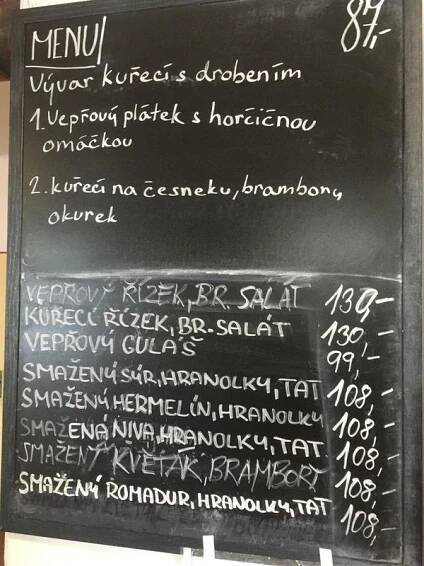 MENU 87,-
Vývar kuřecí s drobením
1. Vepřový plátek s horčičnou
omáčkou
2. kuřecí na česneku, brambory
okurek
VEPŘOVÝ ŘÍZEK, BR. SALÁT 130,-
KUŘECÍ ŘÍZEK, BR. SALÁT 130,-
VEPŘOVÝ GULÁŠ 99,-
SMAŽENÝ SÝR, HRANOLKY, TAT 108,-
SMAŽENÝ HERMELÍN, HRANOLKY 108,-
SMAŽENÁ NIVA, HRANOLKY, TAT 108,-
SMAŽENÝ KVĚTÁK, BRAMBORY 108,-
SMAŽENÝ ROMADUR, HRANOLKY, TAT 108,-